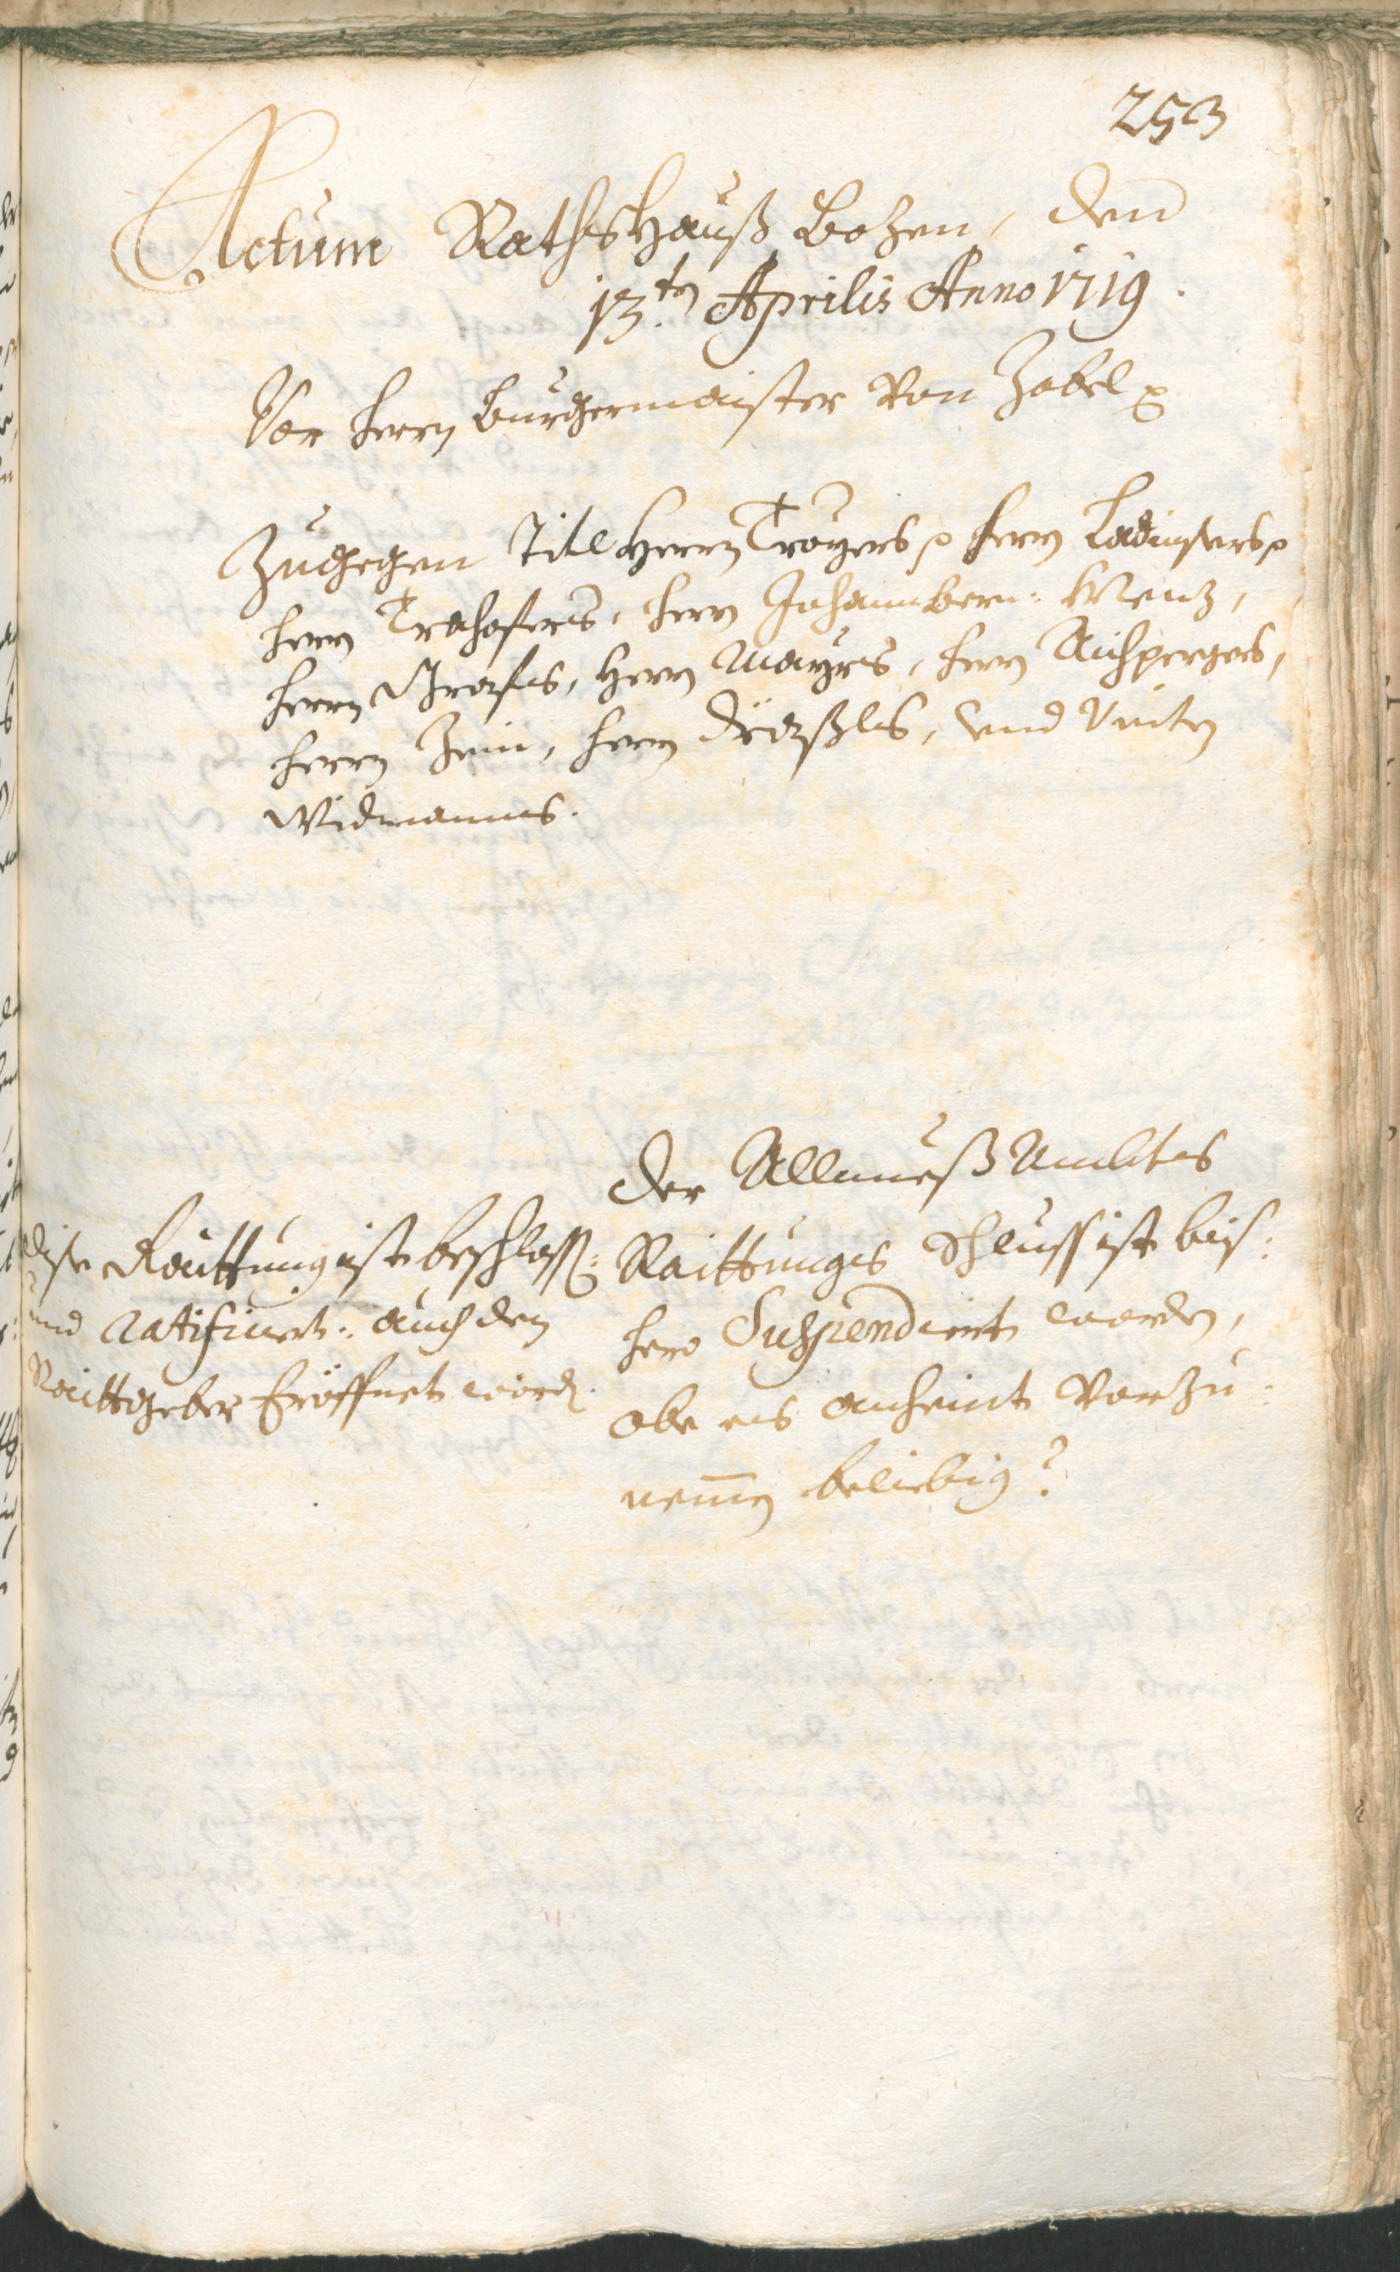 253
Actum RathsHauß Bozen, den
13.ten Aprilis Anno 1719.
Vor herrn Burgermaister Von Zobel
Zugegen Titl Herrn Troyers herrn Ladinsers
herrn Trahofers, herrn Johann Bern: Menz,
herrn Grafes, herrn Mayrs, herrn Aichpergers,
herrn Zein, herrn und Veiten
Widmanns.
Der Allmueß Ambtes
Raittunges Schluss ist bis:
hero Suspendiert worden,
obe es anheint Vorzu:
nemen beliebig?
dise Raittung ist beschloss:
und ratificiert: auch den
Raittgeber Eröffnet word.